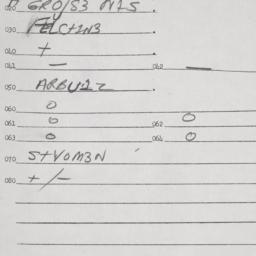 020 GRO/S3 N1S .
030 FLC+1N3 .
040 + .
041 — 042 —
050 ARBU1Z .
060 O
061 O 062 O
063 O 064 O
070 S+VOM3N
080 + /-